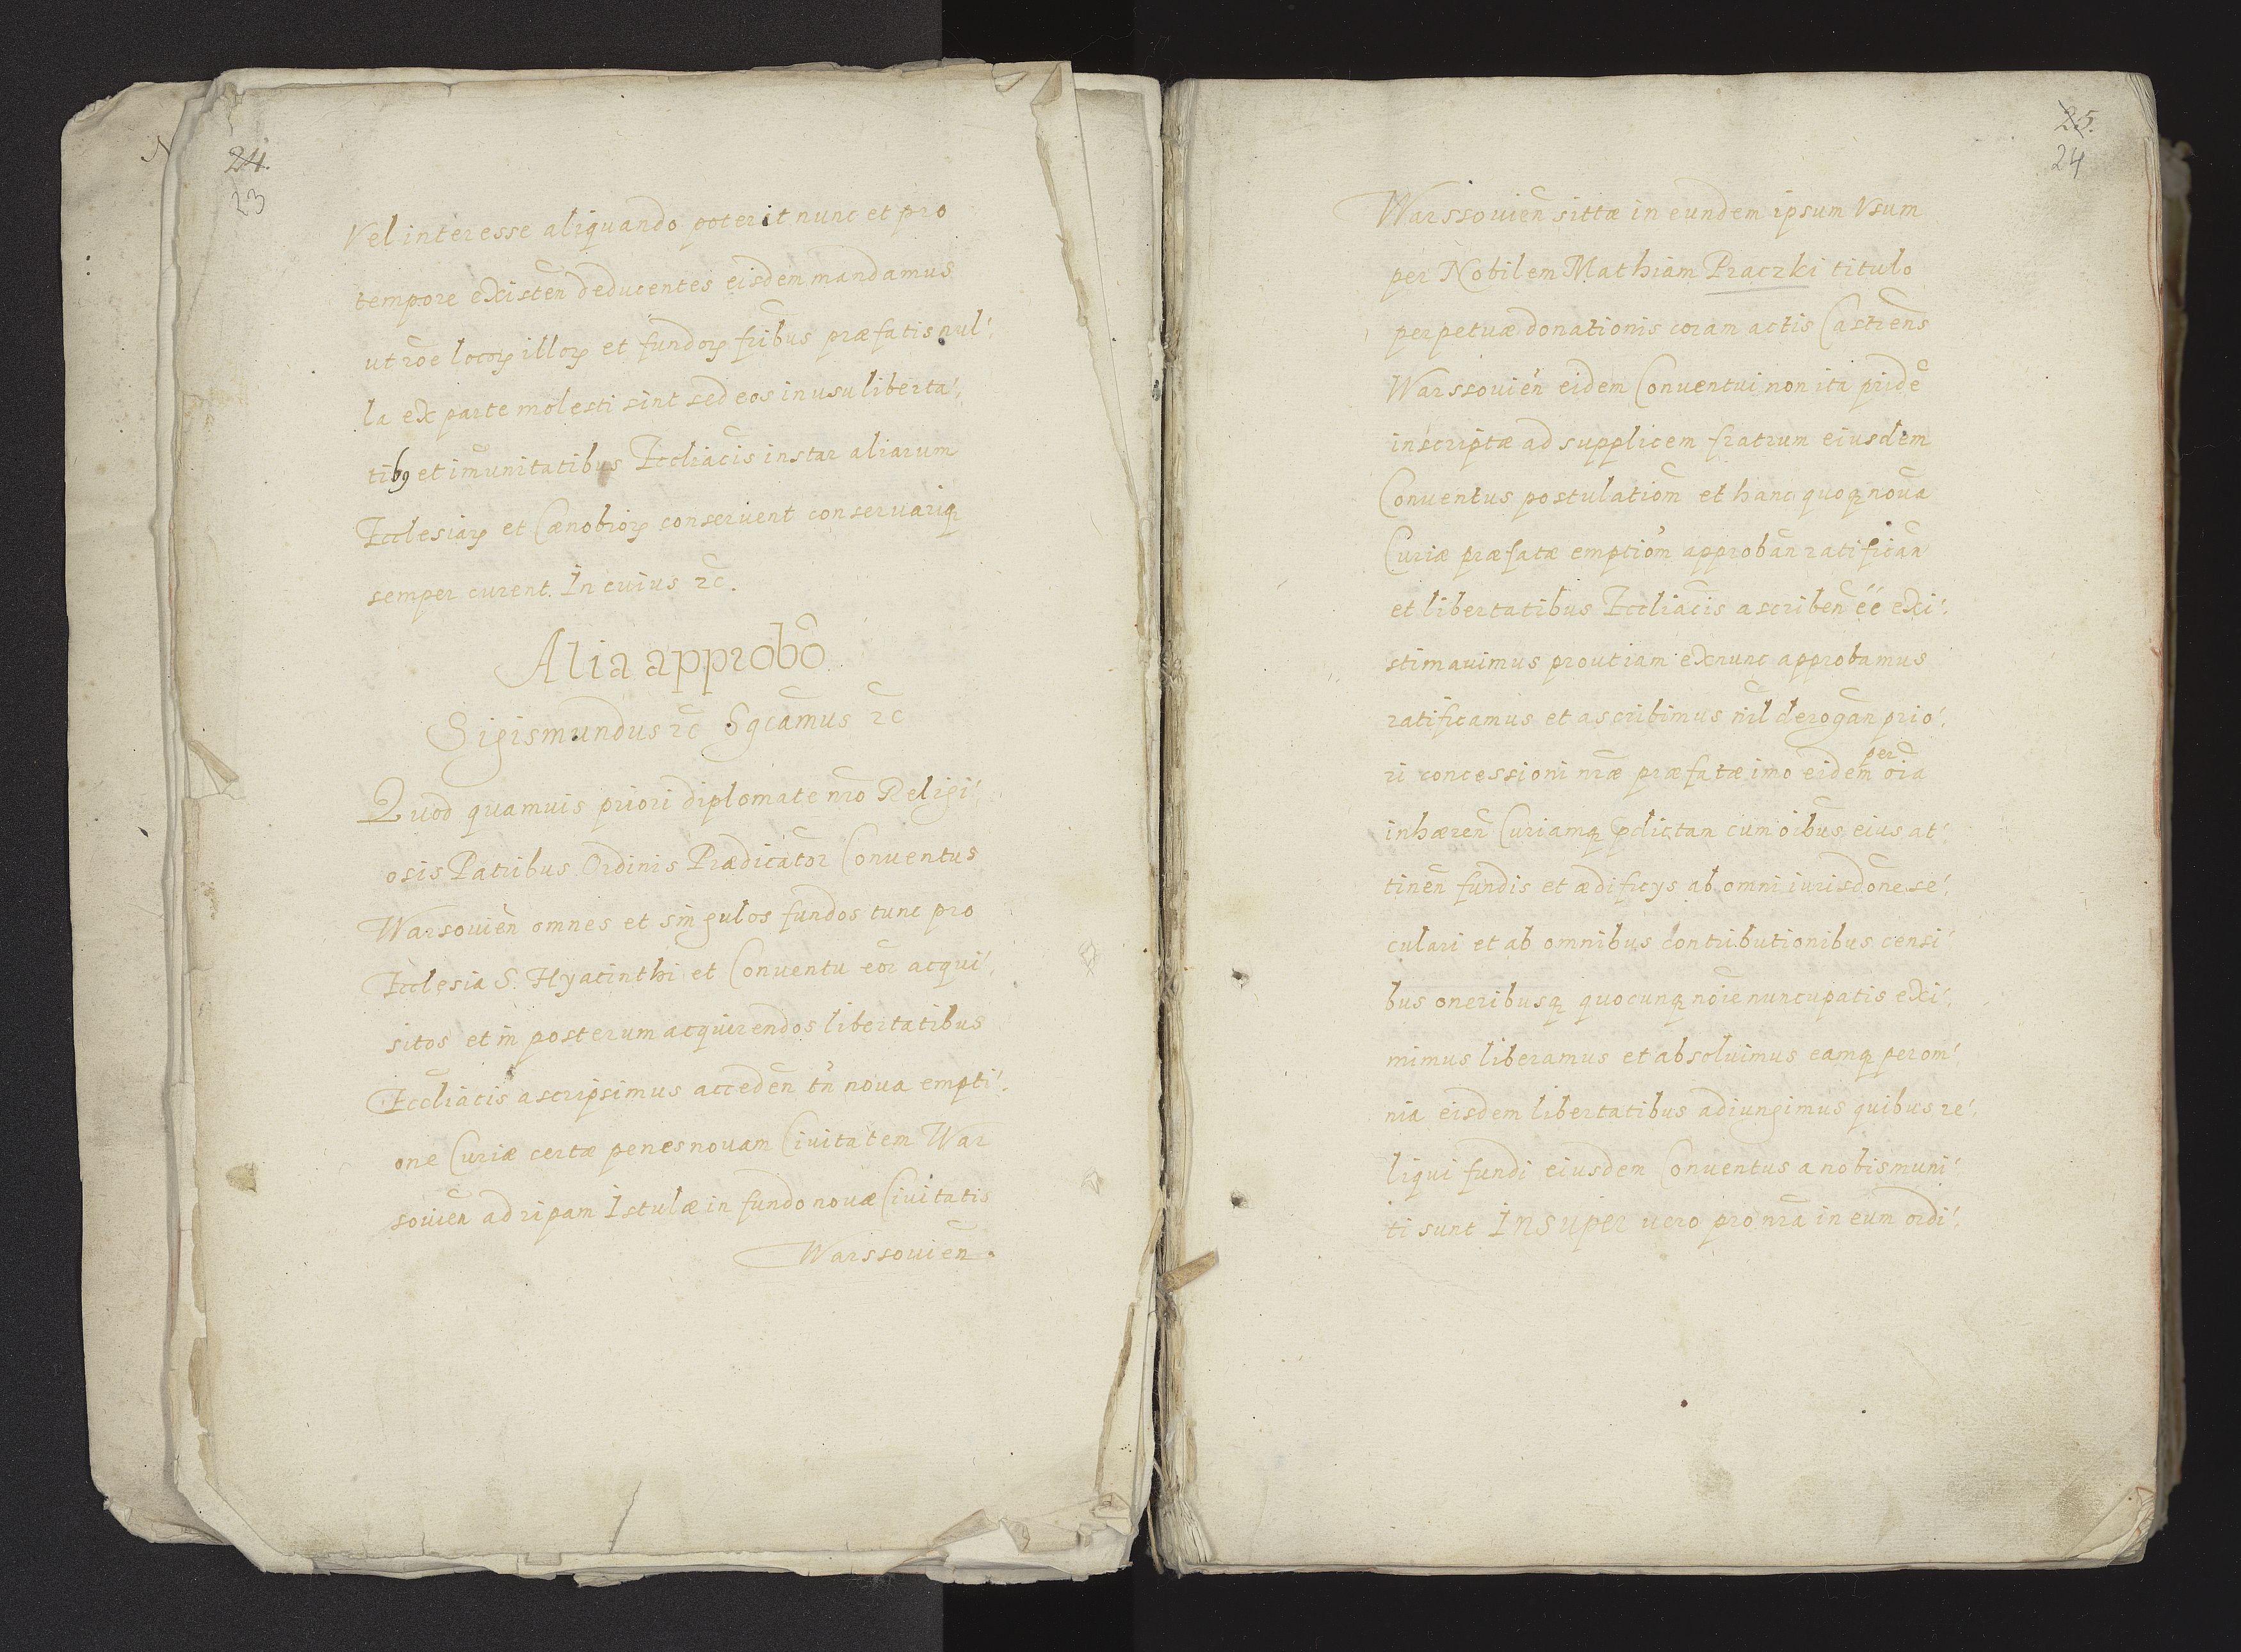 24.
23
Vel interesse aliquando poterit nunc et pro
tempore existen̄ deducentes eisdem mandamus
ut rōe locoꝝ illoꝝ et fundoꝝ fribus præfatis nul-
la ex parte molesti sint sed eos in usu liberta-
tibꝰ et im̄unitatibus Eccliācis instar aliarum
Ecclesiaꝝ et Cænobioꝝ conseruent conseruariqꝫ
semper curent. In cuius ꝛc̄.
Alia approbō
Sigismundus ꝛc̄ Sgcāmus ꝛc̄
Quod quamuis priori diplomate nrō Religi-
osis Patribus Ordinis Prædicātor Conuentus
Warsouien̄ omnes et singulos fundos tunc pro
Ecclesia S. Hyacinthi et Conuentu eor acqui-
sitos et in posterum acquirendos libertatibus
Eccliācis ascripsimus acceden̄ tn̄ noua empti-
one Curiæ certæ penes nouam Ciuitatem War
souien̄ ad ripam Istulæ in fundo nouæ Ciuitatis
Warssouien̄.
25.
24
Warssouien̄ sittæ in eundem ipsum Vsum
per Nobilem Mathiam Praczki titulo
perpetuæ donationis coram actis Castren̄s
Warssouien̄ eidem Conuentui non ita pridē
inscriptæ ad supplicem fratrum eiusdem
Conuentus postulatiom̄ et hanc quoqꝫ nouā
Curiæ præfatæ emptiom̄ approban̄ ratifican̄
et libertatibus Eccliācis ascriben̄ ēē exi-
stimauimus prout iam exnunc approbamus
ratificamus et ascribimus nil̄ derogan̄ prio-
ri concessioni nræ præfatæ imo eidem per oīa
inhæren̄ Curiamqꝫ p̄dictan cum oībus eius at-
tinen̄ fundis et ædificys ab omni iurisdōne se-
culari et ab omnibus contributionibus censi-
bus oneribusqꝫ quocunqꝫ noīe nuncupatis exi-
mimus liberamus et absoluimus eamqꝫ per om-
nia eisdem libertatibus adiungimus quibus re-
liqui fundi eiusdem Conuentus a nobis muni-
ti sunt Insuper uero pro nrā in eum ordi-